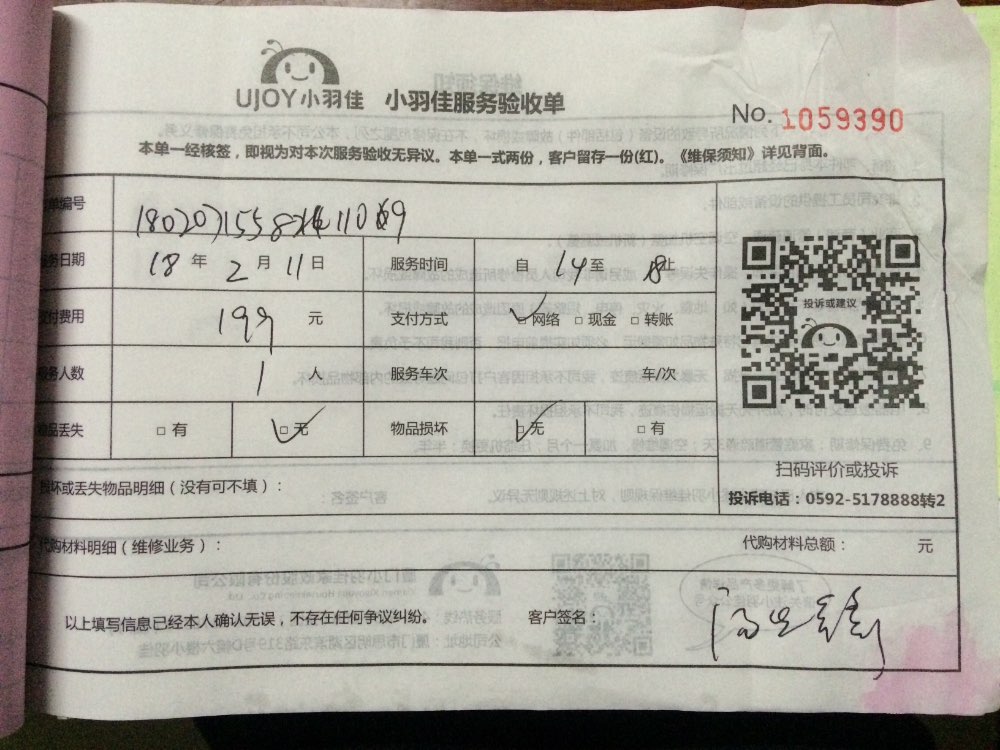 UJOY小羽佳 小羽佳服务验收单
No. 1059390
本单一经核签，即视为对本次服务验收无异议。本单一式两份，客户留存一份(红)。《维保须知》详见背面。
单编号
服务日期 18 年 2 月 11 日 服务时间 自 14 至 18 止
付费用 199 元 支付方式 □网络 □现金 □转账
服务人数 1 人 服务车次 车/次
物品丢失 □有 □无 物品损坏 □无 □有
投诉或建议
扫码评价或投诉
投诉电话：0592-5178888转2
损坏或丢失物品明细（没有可不填）：
代购材料明细（维修业务）： 代购材料总额： 元
以上填写信息已经本人确认无误，不存在任何争议纠纷。 客户签名：